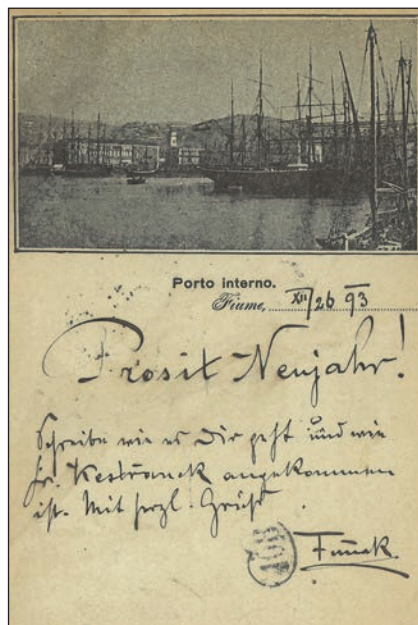 Porto interno.
Fiume, XII/26 93
Prosit Neujahr!
Schreibe wie es Dir geht und wie
fr. Kestranek angekommen
ist. Mit herzl. Gruß
403